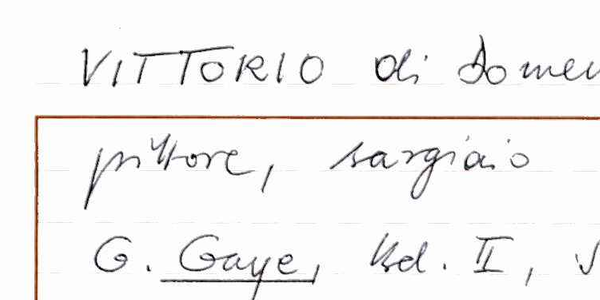 VITTORIO di Domen
pittore, sargiaio
G. Gaye, Bd. II,